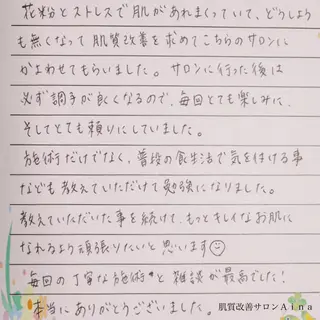 花粉とストレスで肌があれまくっていて、どうしよう
も無くなって肌質改善を求めてこちらのサロンに
かよわせてもらいました。サロンに行った後は
必ず調子が良くなるので、毎回とても楽しみに、
そしてとても頼りにしていました。
施術だけでなく、普段の食生活で気を付ける事
なども教えていただけて勉強になりました。
教えていただいた事を続けて、もっとキレイなお肌に
なれるよう頑張りたいと思います
毎回の丁寧な施術と雑談が最高でした!
本当にありがとうございました。
肌質改善サロンAina